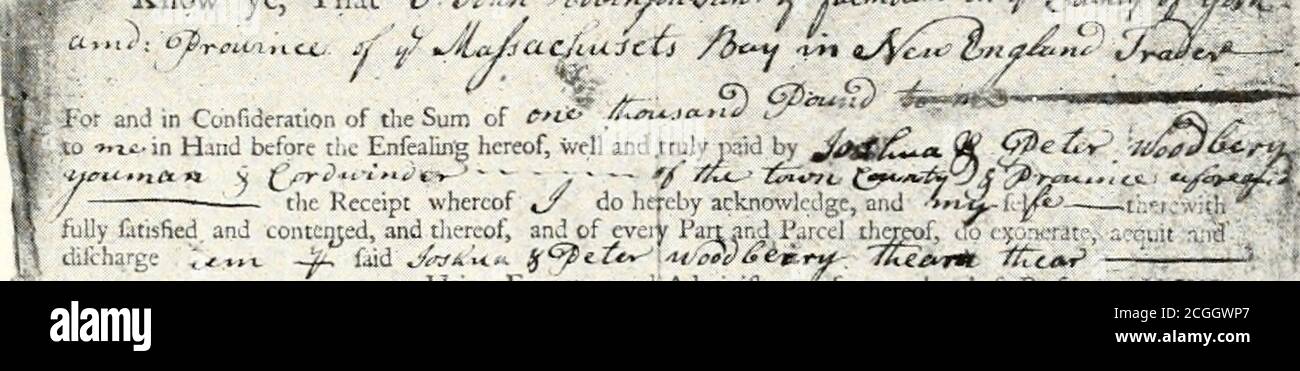 Know ye, That I John Robinson of falmouth in ye County of York
and: Prouince of ye Massachusets Bay in New England Trader
For and in Conſideration of the Sum of one thousand Pound to me
to me in Hand before the Enſealing hereof, well and truly paid by Joshua & Peter Woodbery
youman & Cordwinder of the town County & Prouince aforesaid
the Receipt whereof I do hereby acknowledge, and my ſelfe therewith
fully ſatisfied and contented, and thereof, and of every Part and Parcel thereof, do exonerate, acquit and
diſcharge em ye ſaid Joshua & Peter Woodberry thear
alamy
alamy
Image ID: 2CGGWP7
www.alamy.com